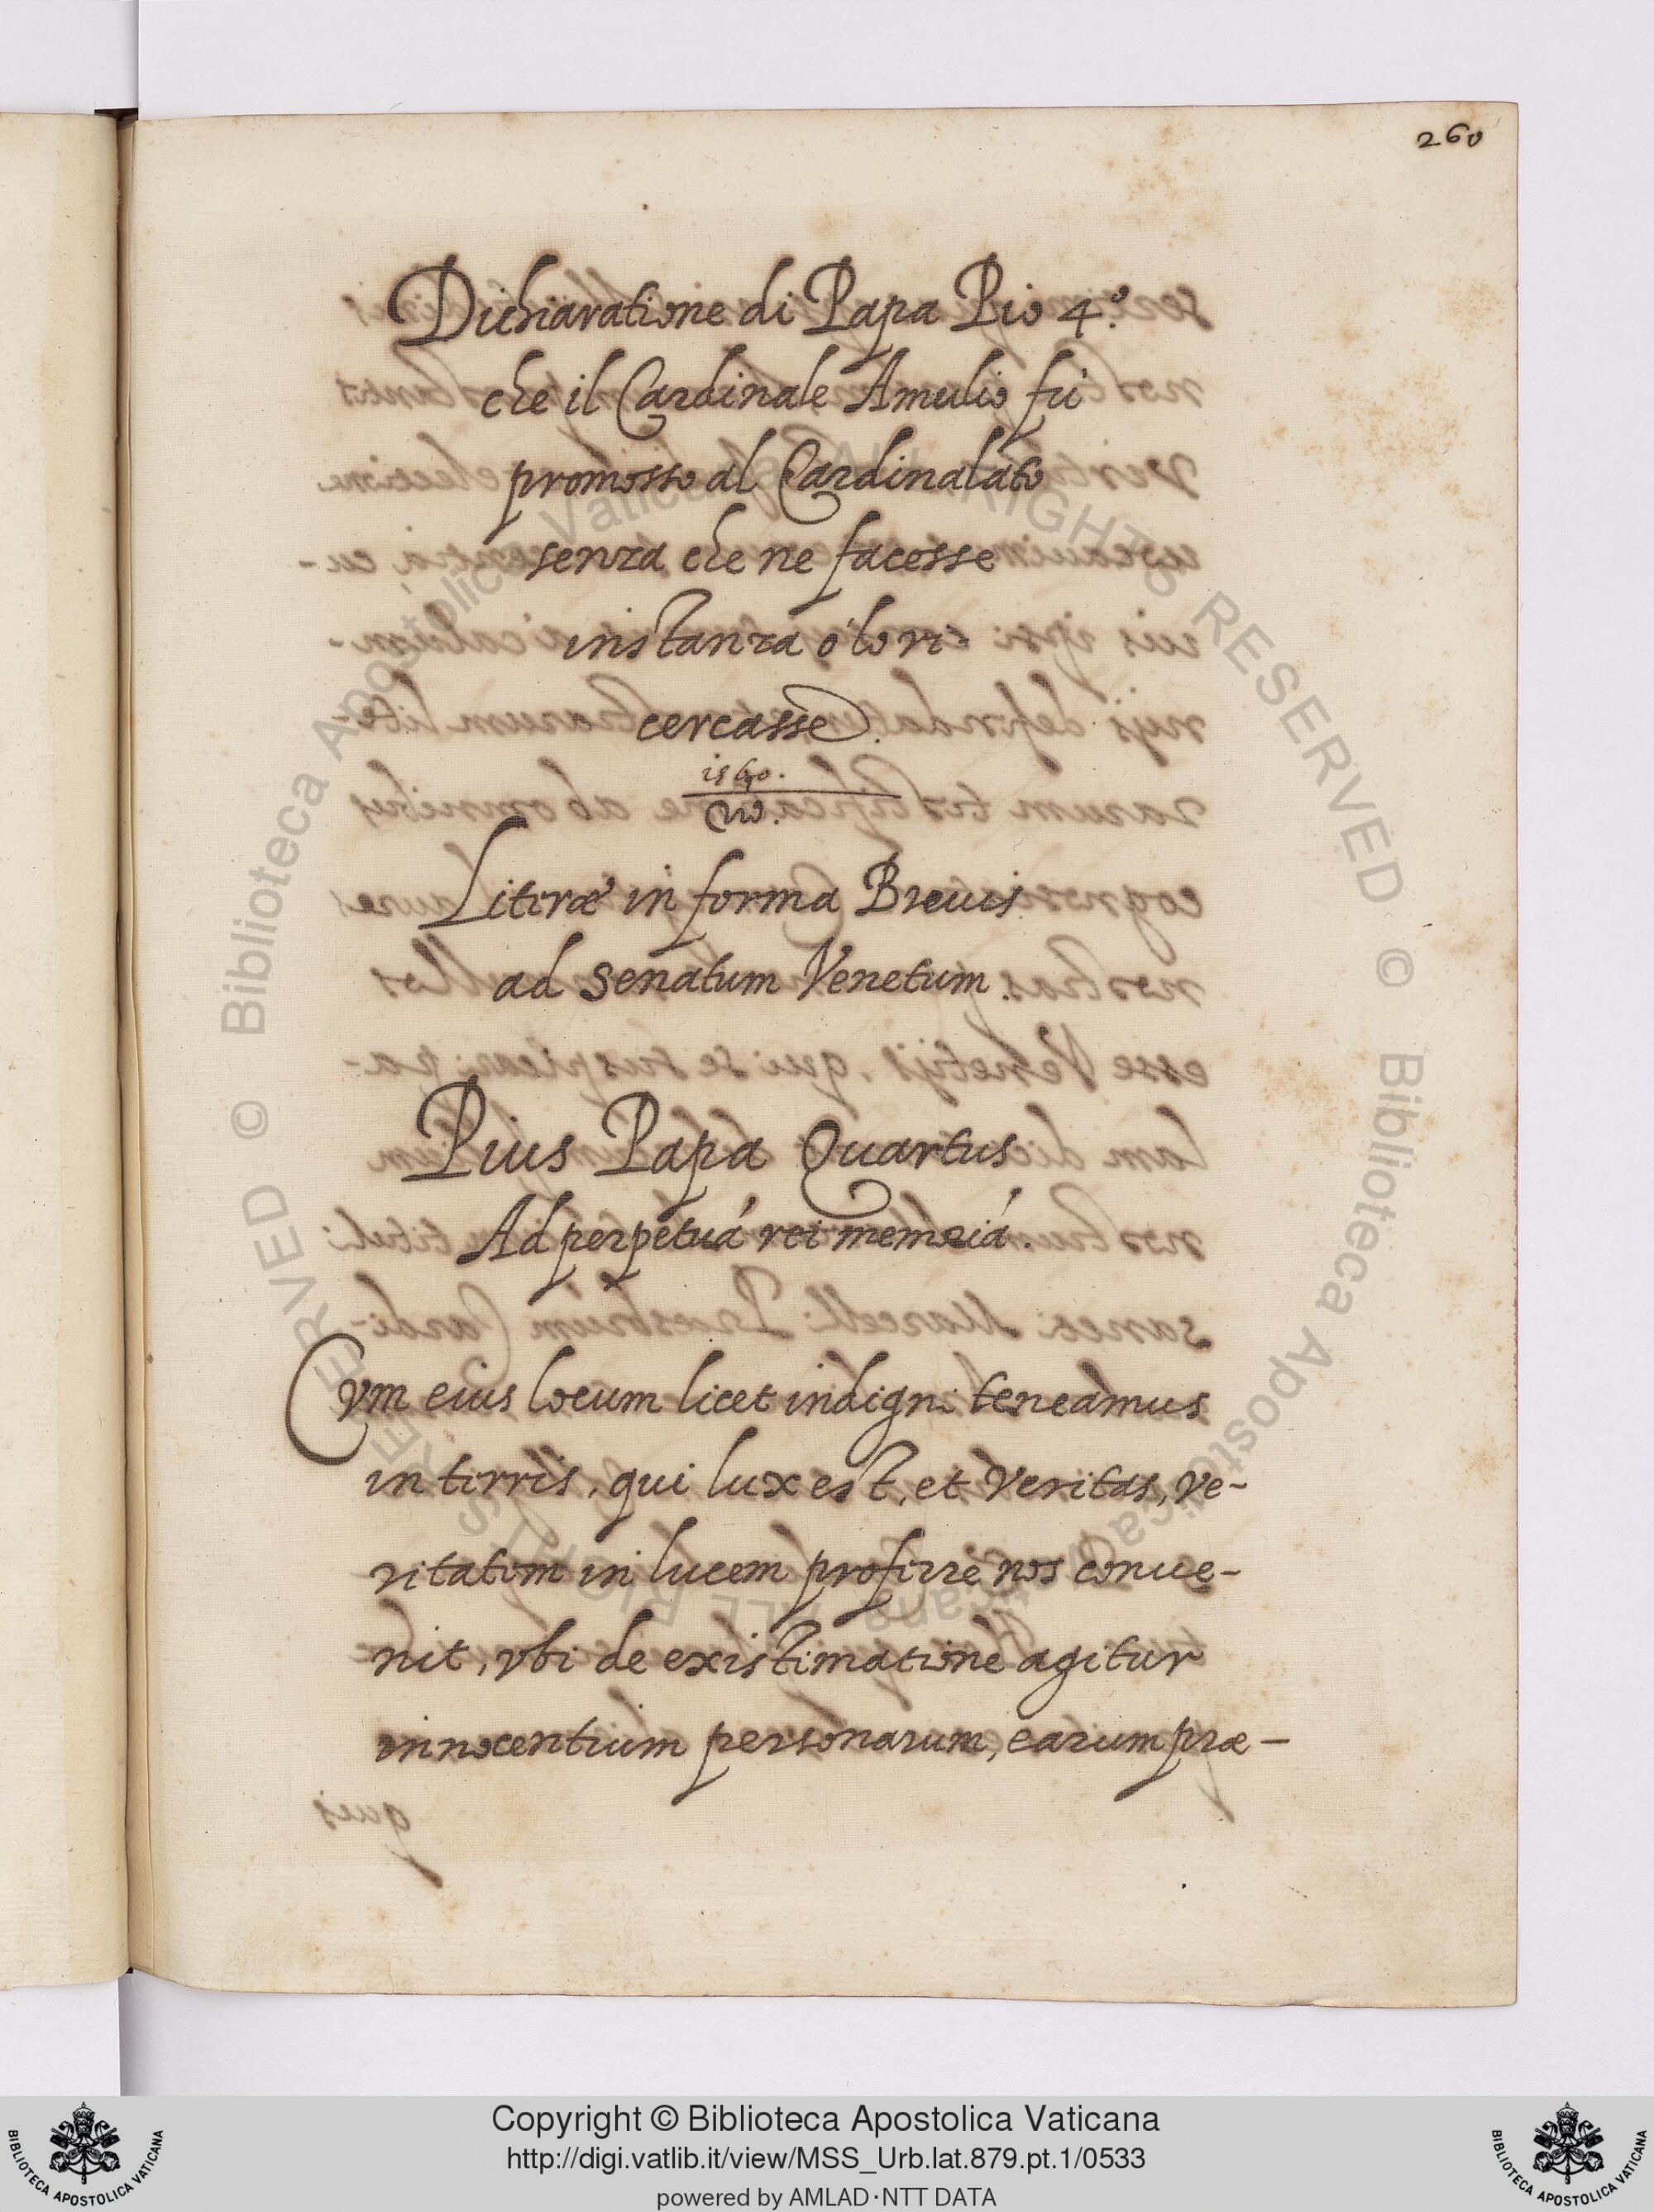 260
Dichiaratione di Papa Pio 4.º
che il Cardinale Amulio fù
promosso al Cardinalato
senza che ne facesse
instanza ò lo ri-
cercasse.
1560.
Literæ in forma Breuis
ad Senatum Venetum.
Pius Papa Quartus
Ad perpetuá rei memoriá.
Cvm eius locum licet indigni teneamus
in terris, qui lux est, et veritas, ve-
ritatem in lucem proferre nos conue-
nit, vbi de existimatione agitur
innocentium personarum, earum præ-
© Biblioteca Apostolica Vaticana ALL RIGHTS RESERVED
© Biblioteca Apostolica Vaticana ALL RIGHTS RESERVED
Copyright © Biblioteca Apostolica Vaticana
http://digi.vatlib.it/view/MSS_Urb.lat.879.pt.1/0533
powered by AMLAD·NTT DATA
BIBLIOTECA APOSTOLICA VATICANA
BIBLIOTECA APOSTOLICA VATICANA